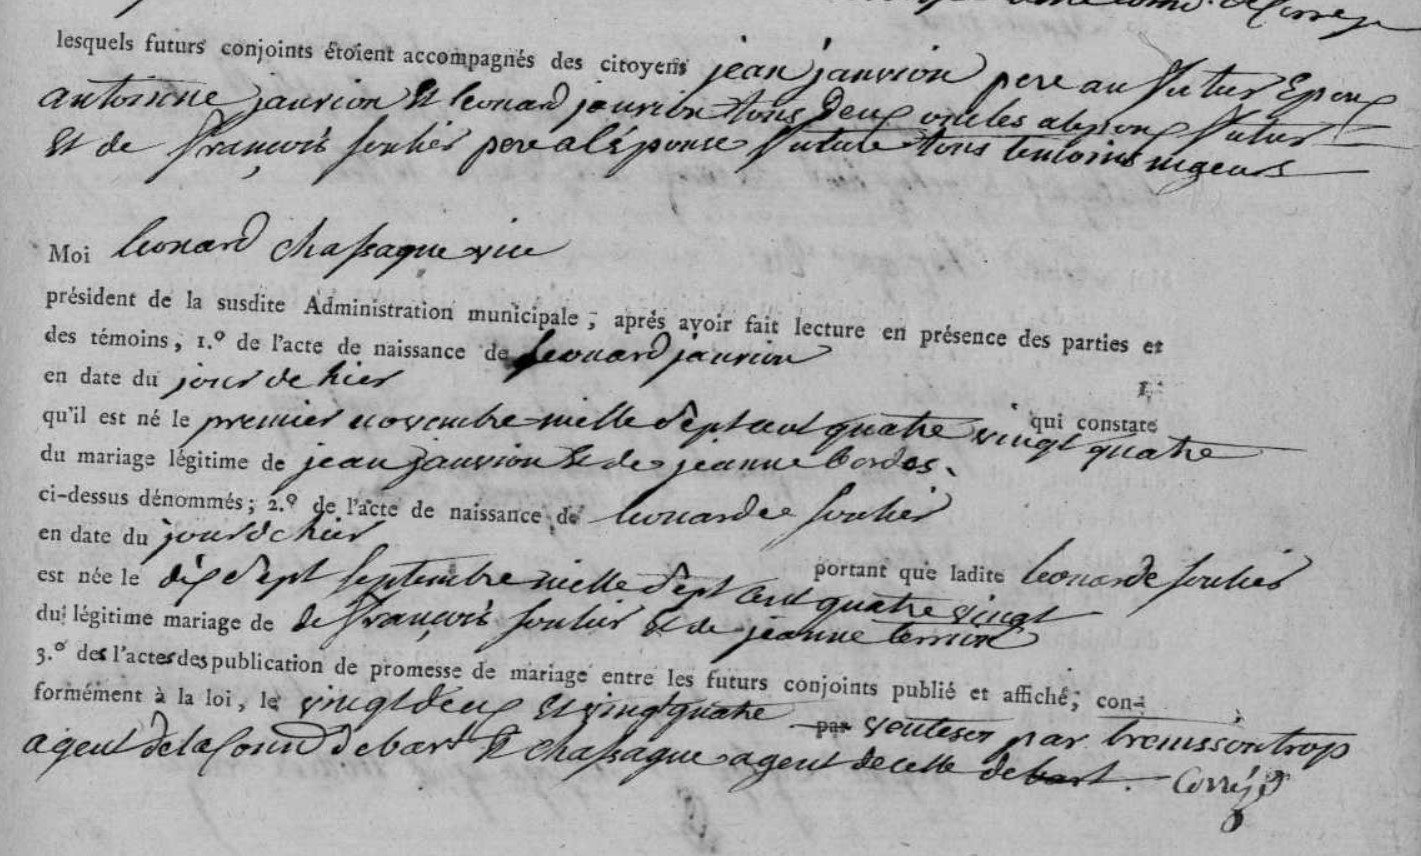 lesquels futurs conjoints étoient accompagnés des citoyens jean janvion pere au futur Epoux
antoinne janvion et leonard janvion tous deux oncles alepoux futur
et de françois soulier pere a l'épouse future tous temoins majeurs
Moi leonard chassaque vice
président de la susdite Administration municipale ; aprés avoir fait lecture en présence des parties et
des témoins, 1.º de l'acte de naissance de leonard janvion
en date du jour de hier
qui constate
qu'il est né le premier novembre mille sept cent quatre vingt quatre
du mariage légitime de jean janvion et de jeanne bordes.
ci-dessus dénommés ; 2.º de l'acte de naissance de leonarde soulier
en date du jour de hier
portant que ladite leonarde soulier
est née le dix sept septembre mille sept cent quatre vingt
du légitime mariage de de françois soulier et de jeanne
3.º des l'actes des publication de promesse de mariage entre les futurs conjoints publié et affiché ; con-
formément à la loi, le vingt deux et vingt quatre par par
agent de la de bar et chassaque agent de celle de bart. Corrèze